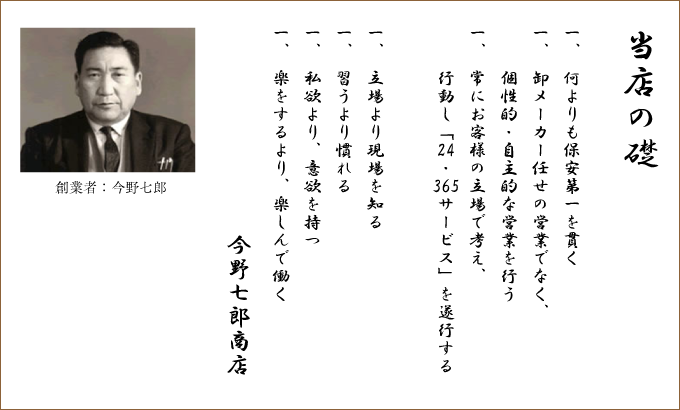 当店の礎
一、何よりも保安第一を貫く
一、卸メーカー任せの営業でなく、
個性的・自主的な営業を行う
一、常にお客様の立場で考え、
行動し「24・365サービス」を遂行する
一、立場より現場を知る
一、習うより慣れる
一、私欲より、意欲を持つ
一、楽をするより、楽しんで働く
今野七郎商店
創業者：今野七郎